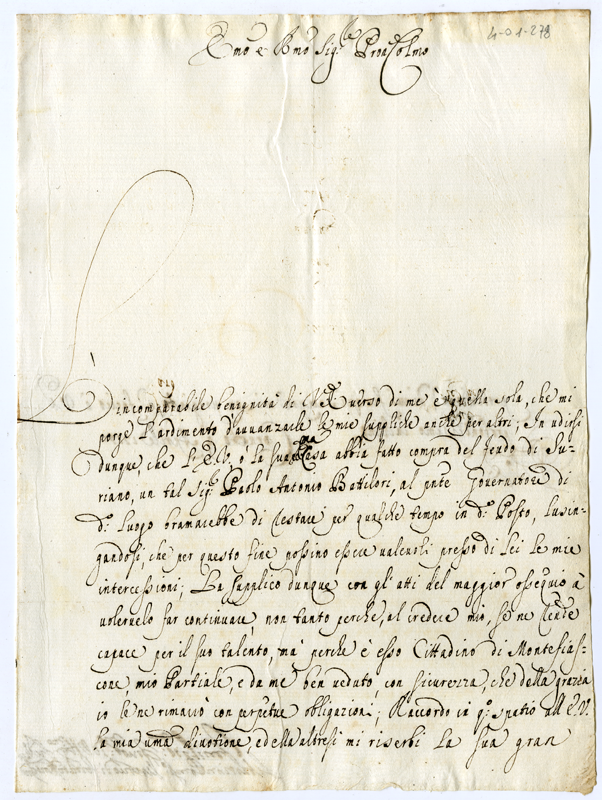 4-01-278
Emo e Rmo Sig.re Pron Colmo
L'incomparabile benignità di V.E. verso di me è quella sola, che mi
porge l'ardimento d'avvanzarle le mie suppliche anche per altri; In udirsi
dunque, che l'E.V., ò la sua ma Casa abbia fatto compra del feudo di Su-
riano, un tal Sig.r Paolo Antonio Battilori, al pnte Governatore di
d.o luogo bramarebbe di restare per qualche tempo in d.o Posto, lusin-
gandosi, che per questo fine possino essere valevoli presso di Lei le mie
intercessioni; La supplico dunque con gl'atti del maggior ossequio à
volervelo far continuare, non tanto perche, al credere mio, se ne rende
capace per il suo talento, mà perche è esso Cittadino di Montefias-
cone, mio Partiale, e da me ben veduto, con sicurezza, che della grazia
io le ne rimarrò con perpetue obligazioni; Raccordo in q.o spatio all'E.V.
la mia uma divotione, ed ella altresi mi riserbi la sua gran